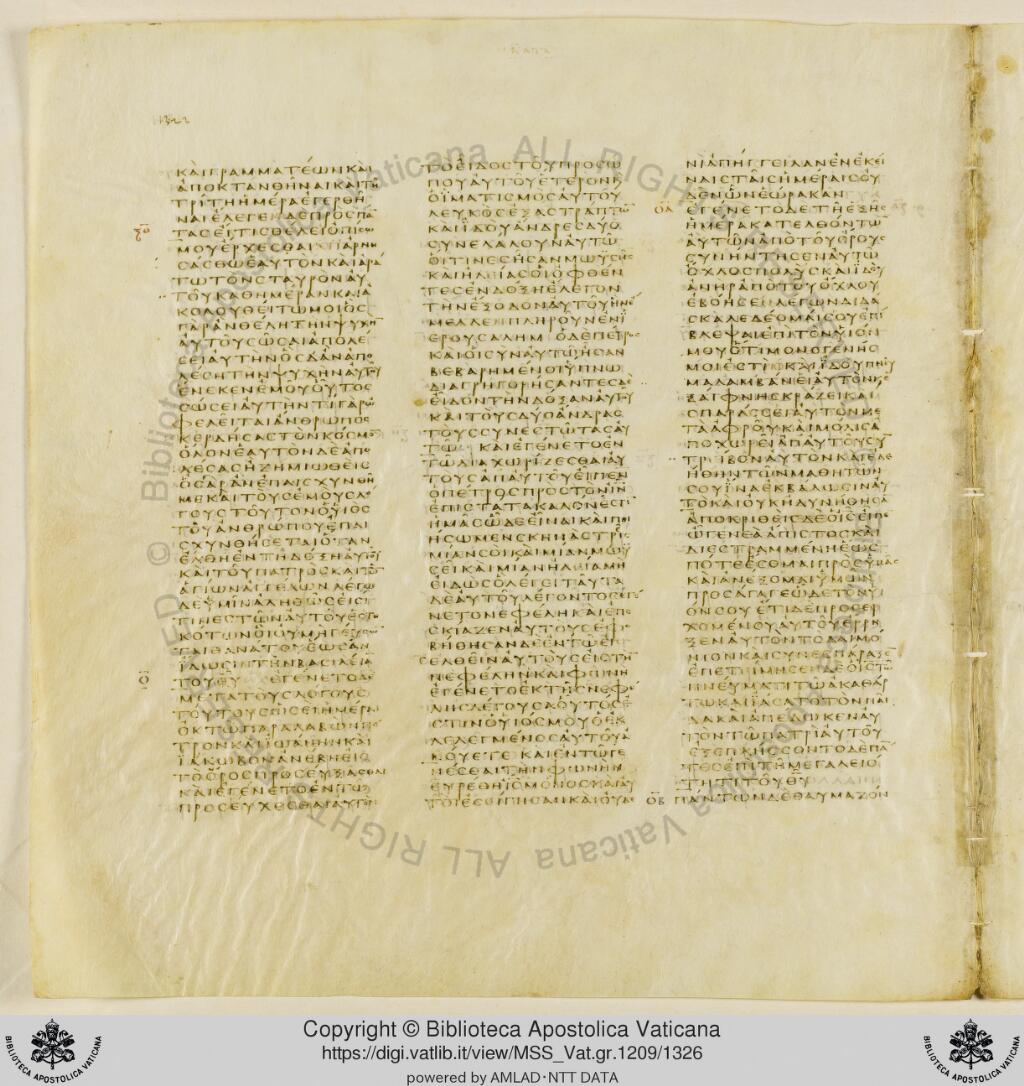 ΚΑΙΓΡΑΜΜΑΤΕΩΝΚΑΙ
ΑΠΟΚΤΑΝΘΗΝΑΙΚΑΙΤΗ
ΤΡΙΤΗΗΜΕΡΑΕΓΕΡΘΗ
ΝΑΙΕΛΕΓΕΝΔΕΠΡΟϹΠΑ
ΤΑϹΕΙΤΙϹΘΕΛΕΙΟΠΙϹΩ
ΜΟΥΕΡΧΕϹΘΑΙΑΡΝΗ
ϹΑϹΘΩΕΑΥΤΟΝΚΑΙΑΡΑ
ΤΩΤΟΝϹΤΑΥΡΟΝΑΥ
ΤΟΥΚΑΘΗΜΕΡΑΝΚΑΙΑ
ΚΟΛΟΥΘΕΙΤΩΜΟΙΟϹ
ΓΑΡΑΝΘΕΛΗΤΗΝΨΥΧΗ
ΑΥΤΟΥϹΩϹΑΙΑΠΟΛΕ
ϹΕΙΑΥΤΗΝΟϹΔΑΝΑΠΟ
ΛΕϹΗΤΗΝΨΥΧΗΝΑΥΤΟΥ
ΕΝΕΚΕΝΕΜΟΥΟΥΤΟϹ
ϹΩϹΕΙΑΥΤΗΝΤΙΓΑΡΩ
ΦΕΛΕΙΤΑΙΑΝΘΡΩΠΟϹ
ΚΕΡΔΗϹΑϹΤΟΝΚΟϹΜΟ
ΟΛΟΝΕΑΥΤΟΝΔΕΑΠΟ
ΛΕϹΑϹΗΖΗΜΙΩΘΕΙϹ
ΟϹΓΑΡΑΝΕΠΑΙϹΧΥΝΘΗ
ΜΕΚΑΙΤΟΥϹΕΜΟΥϹΛΟ
ΓΟΥϹΤΟΥΤΟΝΟΥΙΟϹ
ΤΟΥΑΝΘΡΩΠΟΥΕΠΑΙ
ϹΧΥΝΘΗϹΕΤΑΙΟΤΑΝ
ΕΛΘΗΕΝΤΗΔΟΞΗΑΥΤΟΥ
ΚΑΙΤΟΥΠΑΤΡΟϹΚΑΙΤΩ
ΑΓΙΩΝΑΓΓΕΛΩΝΛΕΓΩ
ΔΕΥΜΙΝΑΛΗΘΩϹΕΙϹΙ
ΤΙΝΕϹΤΩΝΑΥΤΟΥΕϹΤΗ
ΚΟΤΩΝΟΙΟΥΜΗΓΕΥϹΩ
ΤΑΙΘΑΝΑΤΟΥΕΩϹΑΝ
ΙΔΩϹΙΝΤΗΝΒΑϹΙΛΕΙΑ
ΤΟΥΘΥ ΕΓΕΝΕΤΟΔΕ
ΜΕΤΑΤΟΥϹΛΟΓΟΥϹ
ΤΟΥΤΟΥϹΩϹΕΙΗΜΕΡΑΙ
ΟΚΤΩΠΑΡΑΛΑΒΩΝΠΕ
ΤΡΟΝΚΑΙΙΩΑΝΗΝΚΑΙ
ΙΑΚΩΒΟΝΑΝΕΒΗΕΙϹ
ΤΟΟΡΟϹΠΡΟϹΕΥΞΑϹΘΑΙ
ΚΑΙΕΓΕΝΕΤΟΕΝΤΩ
ΠΡΟϹΕΥΧΕϹΘΑΙΑΥΤΟΝ
ΤΟΕΙΔΟϹΤΟΥΠΡΟϹΩ
ΠΟΥΑΥΤΟΥΕΤΕΡΟΝΚ
ΟΙΜΑΤΙϹΜΟϹΑΥΤΟΥ
ΛΕΥΚΟϹΕΞΑϹΤΡΑΠΤΩ
ΚΑΙΙΔΟΥΑΝΔΡΕϹΔΥΟ
ϹΥΝΕΛΑΛΟΥΝΑΥΤΩ
ΟΙΤΙΝΕϹΗϹΑΝΜΩΥϹΗϹ
ΚΑΙΗΛΕΙΑϹΟΙΟΦΘΕΝ
ΤΕϹΕΝΔΟΞΗΕΛΕΓΟΝ
ΤΗΝΕΞΟΔΟΝΑΥΤΟΥΗΝΗ
ΜΕΛΛΕΝΠΛΗΡΟΥΝΕΝΙ
ΕΡΟΥϹΑΛΗΜ ΟΔΕΠΕΤΡΟϹ
ΚΑΙΟΙϹΥΝΑΥΤΩΗϹΑΝ
ΒΕΒΑΡΗΜΕΝΟΙΥΠΝΩ
ΔΙΑΓΡΗΓΟΡΗϹΑΝΤΕϹΔΕ
ΕΙΔΟΝΤΗΝΔΟΞΑΝΑΥΤΟΥ
ΚΑΙΤΟΥϹΔΥΟΑΝΔΡΑϹ
ΤΟΥϹϹΥΝΕϹΤΩΤΑϹΑΥ
ΤΩ ΚΑΙΕΓΕΝΕΤΟΕΝ
ΤΩΔΙΑΧΩΡΙΖΕϹΘΑΙΑΥ
ΤΟΥϹΑΠΑΥΤΟΥΕΙΠΕΝ
ΟΠΕΤΡΟϹΠΡΟϹΤΟΝΙΝ
ΕΠΙϹΤΑΤΑΚΑΛΟΝΕϹΤΙ
ΗΜΑϹΩΔΕΕΙΝΑΙΚΑΙΠΟΙ
ΗϹΩΜΕΝϹΚΗΝΑϹΤΡΙϹ
ΜΙΑΝϹΟΙΚΑΙΜΙΑΝΜΩΥ
ϹΕΙΚΑΙΜΙΑΝΗΛΕΙΑΜΗ
ΕΙΔΩϹΟΛΕΓΕΙΤΑΥΤΑ
ΔΕΑΥΤΟΥΛΕΓΟΝΤΟϹΕΓΕ
ΝΕΤΟΝΕΦΕΛΗΚΑΙΕΠΕ
ϹΚΙΑΖΕΝΑΥΤΟΥϹΕΦΟ
ΒΗΘΗϹΑΝΔΕΕΝΤΩΕΙϹ
ΕΛΘΕΙΝΑΥΤΟΥϹΕΙϹΤΗ
ΝΕΦΕΛΗΝΚΑΙΦΩΝΗ
ΕΓΕΝΕΤΟΕΚΤΗϹΝΕΦΕ
ΛΗϹΛΕΓΟΥϹΑΟΥΤΟϹΕ
ϹΤΙΝΟΥΙΟϹΜΟΥΟΕΚ
ΛΕΛΕΓΜΕΝΟϹΑΥΤΟΥΑ
ΚΟΥΕΤΕ ΚΑΙΕΝΤΩΓΕ
ΝΕϹΘΑΙΤΗΝΦΩΝΗΝ
ΕΥΡΕΘΗΙϹΜΟΝΟϹΚΑΙΑΥ
ΤΟΙΕϹΙΓΗϹΑΝΚΑΙΟΥΔΕ
ΝΙΑΠΗΓΓΕΙΛΑΝΕΝΕΚΕΙ
ΝΑΙϹΤΑΙϹΗΜΕΡΑΙϹΟΥ
ΔΕΝΩΝΕΩΡΑΚΑΝ
ΟΑ ΕΓΕΝΕΤΟΔΕΤΗΕΞΗϹ
ΗΜΕΡΑΚΑΤΕΛΘΟΝΤΩ
ΑΥΤΩΝΑΠΟΤΟΥΟΡΟΥϹ
ϹΥΝΗΝΤΗϹΕΝΑΥΤΩ
ΟΧΛΟϹΠΟΛΥϹΚΑΙΙΔΟΥ
ΑΝΗΡΑΠΟΤΟΥΟΧΛΟΥ
ΕΒΟΗϹΕΝΛΕΓΩΝΔΙΔΑ
ϹΚΑΛΕΔΕΟΜΑΙϹΟΥΕΠΙ
ΒΛΕΨΑΙΕΠΙΤΟΝΥΙΟΝ
ΜΟΥΟΤΙΜΟΝΟΓΕΝΗϹ
ΜΟΙΕϹΤΙΝΚΑΙΙΔΟΥΠΝΑ
ΛΑΜΒΑΝΕΙΑΥΤΟΝΚΑΙΕ
ΞΑΙΦΝΗϹΚΡΑΖΕΙΚΑΙ
ϹΠΑΡΑϹϹΕΙΑΥΤΟΝΜΕ
ΤΑΑΦΡΟΥΚΑΙΜΟΛΙϹΑ
ΠΟΧΩΡΕΙΑΠΑΥΤΟΥϹΥ
ΤΡΕΙΒΟΝΑΥΤΟΝΚΑΙΕΔΕ
ΗΘΗΝΤΩΝΜΑΘΗΤΩΝ
ϹΟΥΙΝΑΕΚΒΑΛΩϹΙΝΑΥ
ΤΟΚΑΙΟΥΚΗΔΥΝΗΘΗϹΑ
ΑΠΟΚΡΙΘΕΙϹΔΕΟΙϹΕΙΠΕ
ΩΓΕΝΕΑΑΠΙϹΤΟϹΚΑΙ
ΔΙΕϹΤΡΑΜΜΕΝΗΕΩϹ
ΠΟΤΕΕϹΟΜΑΙΠΡΟϹΥΜΑϹ
ΚΑΙΑΝΕΞΟΜΑΙΥΜΩΝ
ΠΡΟϹΑΓΑΓΕΩΔΕΤΟΝΥΙ
ΟΝϹΟΥΕΤΙΔΕΠΡΟϹΕΡ
ΧΟΜΕΝΟΥΑΥΤΟΥΕΡΡΗ
ΞΕΝΑΥΤΟΝΤΟΔΑΙΜΟ
ΝΙΟΝΚΑΙϹΥΝΕϹΠΑΡΑΞΕ
ΕΠΕΤΙΜΗϹΕΝΔΕΟΙϹΤΩ
ΠΝΕΥΜΑΤΙΤΩΑΚΑΘΑΡ
ΤΩΚΑΙΙΑϹΑΤΟΤΟΝΠΑΙ
ΔΑΚΑΙΑΠΕΔΩΚΕΝΑΥ
ΤΟΝΤΩΠΑΤΡΙΑΥΤΟΥ
ΕΞΕΠΛΗϹϹΟΝΤΟΔΕΠΑ
ΤΕϹΕΠΙΤΗΜΕΓΑΛΕΙΟ
ΤΗΤΙΤΟΥΘΥ
ΟΒ ΠΑΝΤΩΝΔΕΘΑΥΜΑΖΟΝ
Copyright © Biblioteca Apostolica Vaticana
https://digi.vatlib.it/view/MSS_Vat.gr.1209/1326
powered by AMLAD·NTT DATA